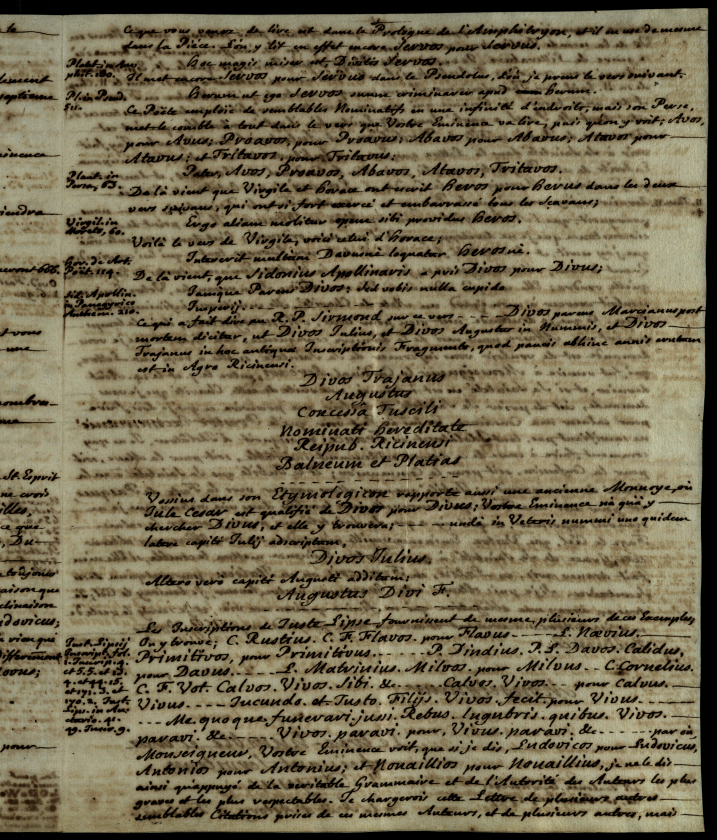 Ce que vous venez de lire est dans le Prologue de l'Amphitryon, et il en use de mesme
dans la Piéce. L'on y lit en effet encore Servos pour Servus.
Plaut. in Am-
phit. 180.
Hoc magis miser est Divitis Servos.
Il met encore Servos pour Servus dans le Pseudolus, d'où je prens le vers suivant.
Plau. Pseud.
Herum ut ego Servos summe criminarer apud Herum.
Ce Poëte emploie de semblables Nominatifs en une infinité d'endroits, mais son Perse,
met le comble à tout dans le vers que Vostre Eminence va lire, puis qu'on y voit; Avos,
pour Avus; Proavos, pour Proavus; Abavos pour Abavus; Atavos pour
Atavus; et Tritavos, pour Tritavus:
Plaut. in
Persa, 65.
Pater, Avos, Proavos, Abavos, Atavos, Tritavos.
De là vient que Virgile et Horace ont escrit Heros pour Herus dans les deux
vers suivans, qui ont si fort exercé et embarrassé tous les Scavans;
Virgil. in
Moreto, 60.
Ergo aliam molitur opem sibi providus Heros.
Voilà le vers de Virgile, voici celui d'Horace;
Hor. de Art.
Poët. 114.
Intererit multùm Davusnè loquatur Herosnè.
De là vient, que Sidonius Apollinaris a pris Divos pour Divus;
Sid. Apollin.
in Panegyrico
Anthem. 210.
Iamque Parens Divos; sed vobis nulla cupido
Imperij.
Ce qui a fait dire au R. P. Sirmond sur ce vers - - - Divos parens Marcianus post
mortem dicitur, ut Divos Iulius, et Divos Augustus in Nummis, et Divos
Trajanus in hoc antiquæ Inscriptionis Fragmento, quod paucis abhinc annis erutum
est in Agro Ricinensi.
Divos Trajanus
Augustus
Concessa Tuscili
Nominati hereditate
Reipub. Ricinensi
Balneum et Platias
Vossius dans son Etymologicon rapporte aussi une ancienne Monnoye, où
Iule Cesar est qualifié de Divos pour Divus; Vostre Eminence n'a qu'à y
chercher Divus, et elle y trouvera; - - - undè in Veteris nummi uno quidem
latere capiti Iulij adscriptum,
Divos Iulius.
Altero verò capiti Augusti additum;
Augustus Divi F.
Les Inscriptions de Iuste Lipse fournissent de mesme, plusieurs de ces Exemples;
On y trouve; C. Rustius. C. F. Flavos. pour Flavus - - - L. Nævius.
Iust. Lipsij
Inscript. fol.
Primitivos, pour Primitivus. - - - P. Dindius. P. L. Davos. Calidus,
pour Davus - - - L. Malvinius Milvos. pour Milvus - - - C. Cornelius.
C. F. Vot. Calvos. Vivos. Sibi. & - - - Calvos. Vivos - - - pour Calvus.
Vivus - - - Iucundo. et Iusto. Filijs. Vivos. fecit. pour Vivus - - -
- - - Me. quoque. funerari. jussi. Rebus. lugubris. quibus. Vivos.
paravi. &c - - - Vivos. paravi. pour, Vivus. paravi. &c - - - par où,
Monseigneur, Vostre Eminence voit, que si je dis, Ludovicos pour Ludovicus,
Antonios pour Antonius; et Nouaillios pour Nouaillius, je ne le dis
ainsi qu'appuyé de la veritable Grammaire et de l'Autorité des Auteurs les plus
graves et les plus respectables. Je chargerois cette Lettre de plusieurs autres
semblables Citations prises de ces mesmes Auteurs, et de plusieurs autres, mais